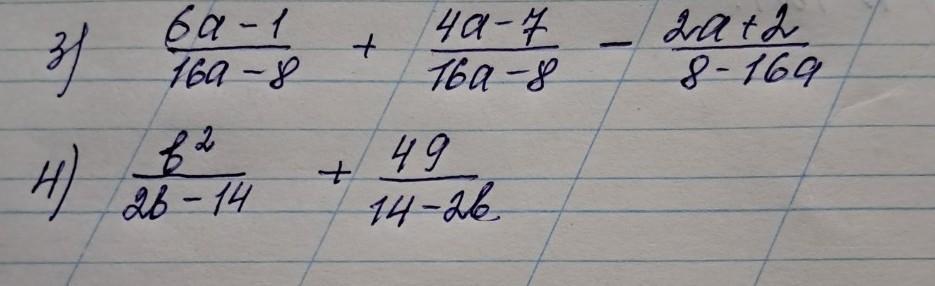 3) (6a-1)/(16a-8) + (4a-7)/(16a-8) - (2a+2)/(8-16a)
4) b²/(2b-14) + 49/(14-2b)